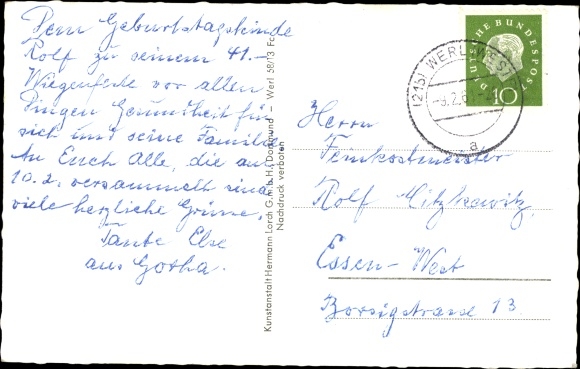 Dem Geburtstagskinde
Rolf zu seinem 41.-
Wiegenfeste vor allen
Dingen Gesundheit für
sich und seine Familie
An Euch Alle, die am
10.2. versammelt sind
viele herzliche Grüsse,
Tante Else
aus Gotha.
Kunstanstalt Hermann Lorch G.m.b.H., Dortmund - Werl 58/13 Fc
Nachdruck verboten
DEUTSCHE BUNDESPOST
10
(21b) WERL
-9.2.6
a
Herrn
Feinkostmeister
Rolf Mitzkewitz,
Essen-West
Borsigstrasse 13